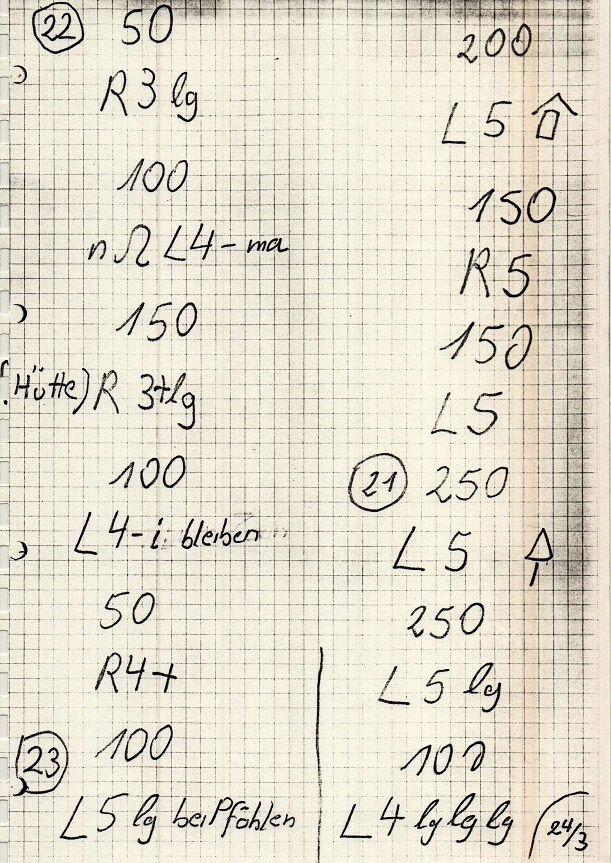 22 50
R3 lg
100
n Ω L4-ma
150
(Hütte) R 3+lg
100
L 4-i bleiben
50
R4+
23 100
L5 lg bei Pfählen
200
L 5
150
R5
150
L5
21 250
L 5
250
L 5 lg
100
L 4 lg lg lg 24/3